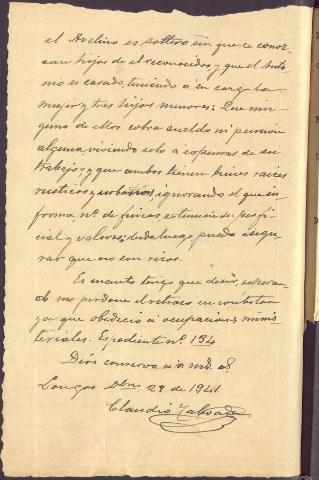 el Avelino es soltero sin que se conoz-
can hijos de el reconocidos, y que el Anto-
nio es casado, teniendo á su cargo la
mujer y tres hijos menores: Que nin-
guno de ellos cobra sueldo ni pension
alguna viviendo solo a expensas de su
trabajo; y que ambos tienen bienes raices
rusticos y urbanos, ignorando el que in-
forma nº de fincas, extension superfi-
cial y valores; desde luego puedo asegu-
rar que no son ricos.
Es cuanto tengo que decir, esperan-
do me perdone el retraso en contestar
ya que obedeció á ocupaciones minis-
teriales. Expediente nº 134
Dios conserve á V. md. aS.
Longos Dbre 29 de 1941
Claudio